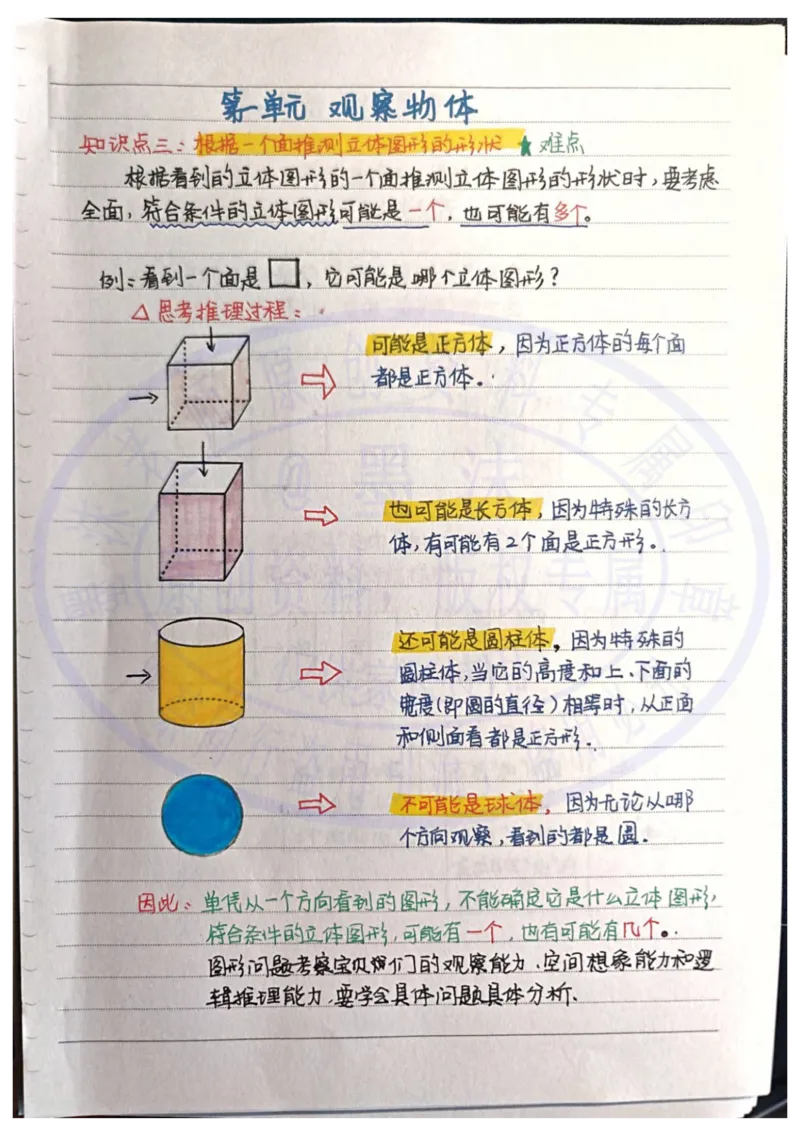 第一单元 观察物体
知识点三：根据一个面推测立体图形的形状 ★ 难点
根据看到的立体图形的一个面推测立体图形的形状时，要考虑
全面，符合条件的立体图形可能是一个，也可能有多个。
例：看到一个面是□，它可能是哪个立体图形？
△思考推理过程：
可能是正方体，因为正方体的每个面
都是正方体。
也可能是长方体，因为特殊的长方
体，有可能有2个面是正方形。
还可能是圆柱体，因为特殊的
圆柱体，当它的高度和上、下面的
宽度(即圆的直径)相等时，从正面
和侧面看都是正方形。
不可能是球体，因为无论从哪
个方向观察，看到的都是圆.
因此：单凭从一个方向看到的图形，不能确定它是什么立体图形，
符合条件的立体图形，可能有一个，也有可能有几个。
图形问题考察宝贝们的观察能力、空间想象能力和逻
辑推理能力，要学会具体问题具体分析.
@黑沫
原创资料，版权专属